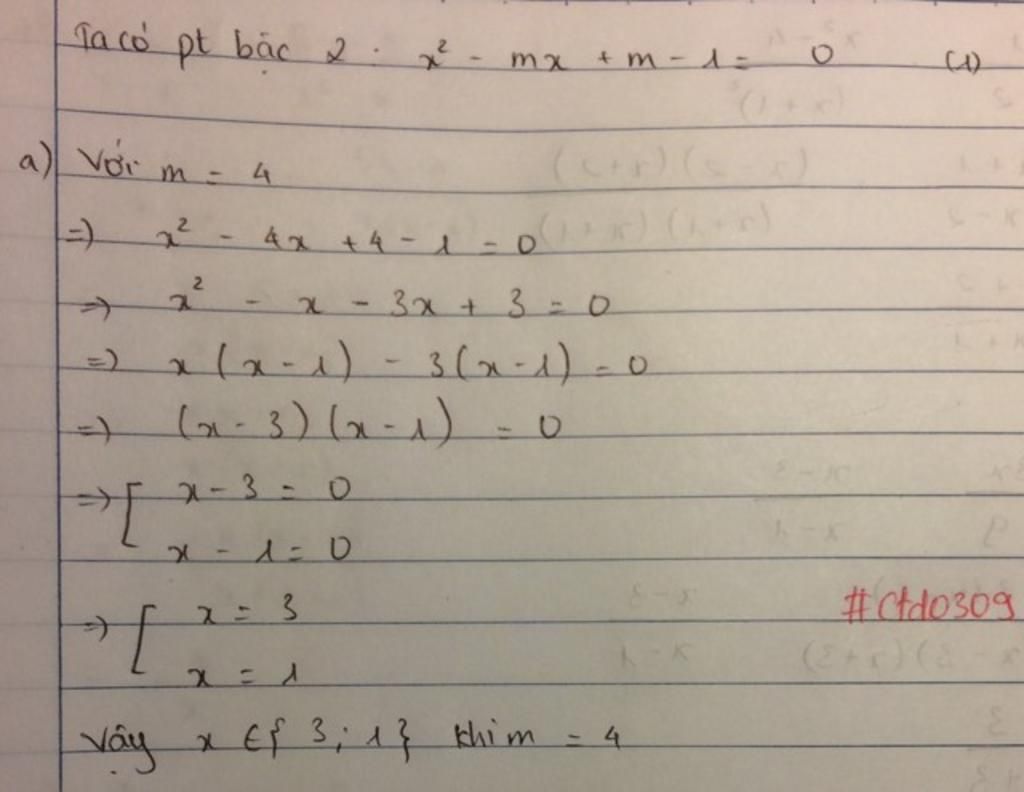 Ta có pt bậc 2 : x² - mx + m - 1 = 0 (1)
a) Với m = 4
=> x² - 4x + 4 - 1 = 0
=> x² - x - 3x + 3 = 0
=> x(x - 1) - 3(x - 1) = 0
=> (x - 3)(x - 1) = 0
=> [ x - 3 = 0
x - 1 = 0
=> [ x = 3
#Ctd0309
x = 1
Vậy x ∈ { 3 ; 1 } khi m = 4